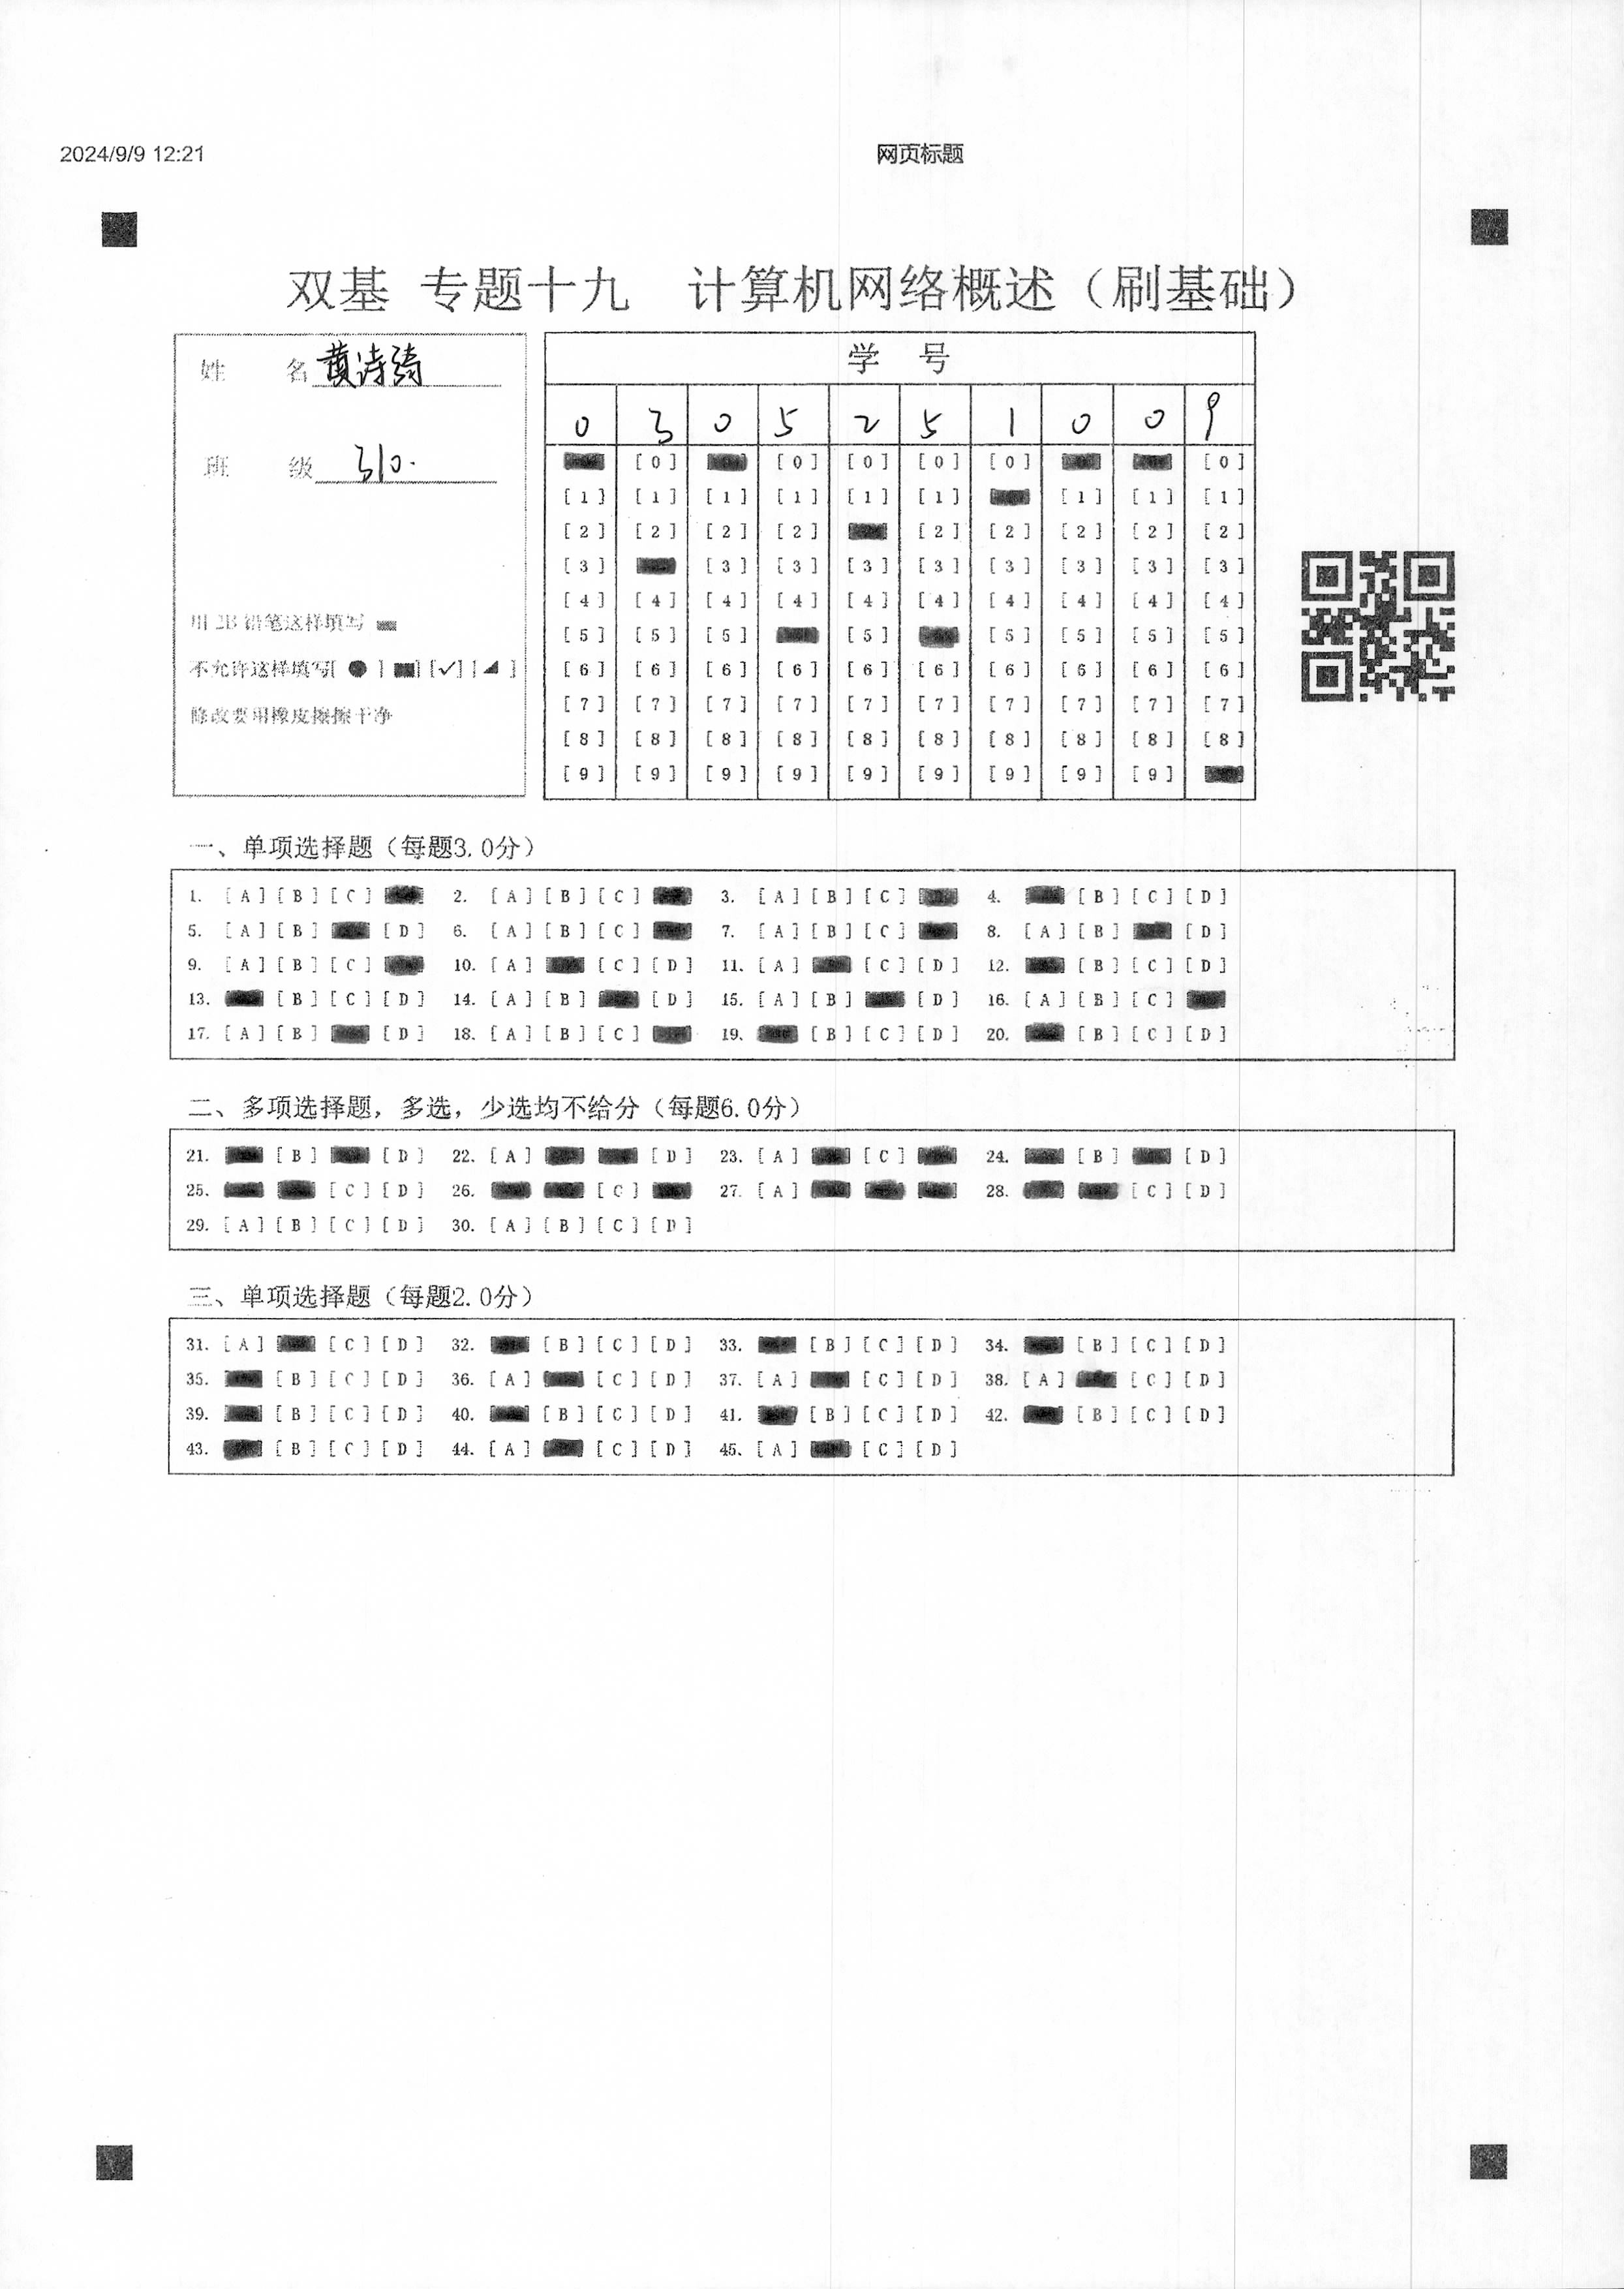 2024/9/9 12:21 网页标题
双基 专题十九 计算机网络概述（刷基础）
姓 名 黄诗绮
班 级 310.
用 2B 铅笔这样填写
不允许这样填写[ ● ] [■] [✓] [◢]
修改要用橡皮擦擦干净
学 号
0 3 0 5 2 5 1 0 0 9
[0] [0] [0] [0] [0] [0]
[1] [1] [1] [1] [1] [1] [1] [1] [1]
[2] [2] [2] [2] [2] [2] [2] [2] [2]
[3] [3] [3] [3] [3] [3] [3] [3] [3]
[4] [4] [4] [4] [4] [4] [4] [4] [4] [4]
[5] [5] [5] [5] [5] [5] [5] [5]
[6] [6] [6] [6] [6] [6] [6] [6] [6] [6]
[7] [7] [7] [7] [7] [7] [7] [7] [7] [7]
[8] [8] [8] [8] [8] [8] [8] [8] [8] [8]
[9] [9] [9] [9] [9] [9] [9] [9] [9]
一、单项选择题（每题3.0分）
1. [A] [B] [C] 2. [A] [B] [C] 3. [A] [B] [C] 4. [B] [C] [D]
5. [A] [B] [D] 6. [A] [B] [C] 7. [A] [B] [C] 8. [A] [B] [D]
9. [A] [B] [C] 10. [A] [C] [D] 11. [A] [C] [D] 12. [B] [C] [D]
13. [B] [C] [D] 14. [A] [B] [D] 15. [A] [B] [D] 16. [A] [B] [C]
17. [A] [B] [D] 18. [A] [B] [C] 19. [B] [C] [D] 20. [B] [C] [D]
二、多项选择题，多选，少选均不给分（每题6.0分）
21. [B] [D] 22. [A] [D] 23. [A] [C] 24. [B] [D]
25. [C] [D] 26. [C] 27. [A] 28. [C] [D]
29. [A] [B] [C] [D] 30. [A] [B] [C] [D]
三、单项选择题（每题2.0分）
31. [A] [C] [D] 32. [B] [C] [D] 33. [B] [C] [D] 34. [B] [C] [D]
35. [B] [C] [D] 36. [A] [C] [D] 37. [A] [C] [D] 38. [A] [C] [D]
39. [B] [C] [D] 40. [B] [C] [D] 41. [B] [C] [D] 42. [B] [C] [D]
43. [B] [C] [D] 44. [A] [C] [D] 45. [A] [C] [D]